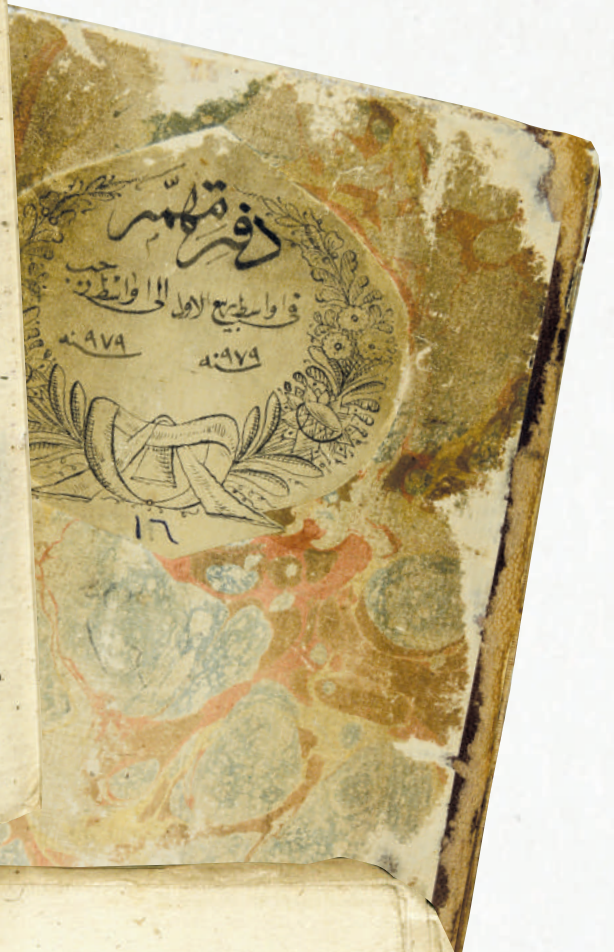 دفتر مهمّه
فی اواسط ربیع الاول الی اواسط رجب
سنه ٩٧٩ سنه ٩٧٩
١٦